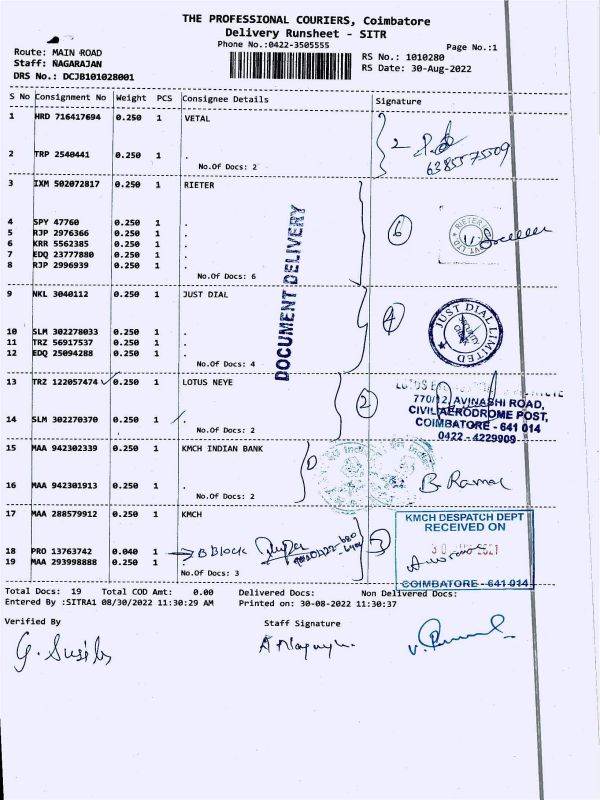 THE PROFESSIONAL COURIERS, Coimbatore
Delivery Runsheet - SITR
Phone No.:0422-3505555
Page No.:1
Route: MAIN ROAD
Staff: NAGARAJAN
DRS No.: DCJB101028001
RS No.: 1010280
RS Date: 30-Aug-2022
S No Consignment No Weight PCS Consignee Details Signature
1 HRD 716417694 0.250 1 VETAL
2 TRP 2540441 0.250 1 .
No.Of Docs: 2
2
6385575509
3 IXM 502072817 0.250 1 RIETER
4 SPY 47760 0.250 1 .
5 RJP 2976366 0.250 1 .
6 KRR 5562385 0.250 1 .
7 EDQ 23777880 0.250 1 .
8 RJP 2996939 0.250 1 .
No.Of Docs: 6
6
DOCUMENT DELIVERY
9 NKL 3040112 0.250 1 JUST DIAL
10 SLM 302278033 0.250 1 .
11 TRZ 56917537 0.250 1 .
12 EDQ 25094288 0.250 1 .
No.Of Docs: 4
4
JUST DIAL LIMITED
13 TRZ 122057474 0.250 1 LOTUS NEYE
14 SLM 302270370 0.250 1 .
No.Of Docs: 2
2
LOTUS
770/12, AVINASHI ROAD,
CIVIL AERODROME POST,
COIMBATORE - 641 014
0422 - 4229909
15 MAA 942302339 0.250 1 KMCH INDIAN BANK
16 MAA 942301913 0.250 1 .
No.Of Docs: 2
17 MAA 288579912 0.250 1 KMCH
18 PRO 13763742 0.040 1 B Block
19 MAA 293998888 0.250 1 .
No.Of Docs: 3
3
KMCH DESPATCH DEPT
RECEIVED ON
COIMBATORE - 641 014
Total Docs: 19 Total COD Amt: 0.00 Delivered Docs: Non Delivered Docs:
Entered By :SITRA1 08/30/2022 11:30:29 AM Printed on: 30-08-2022 11:30:37
Verified By Staff Signature